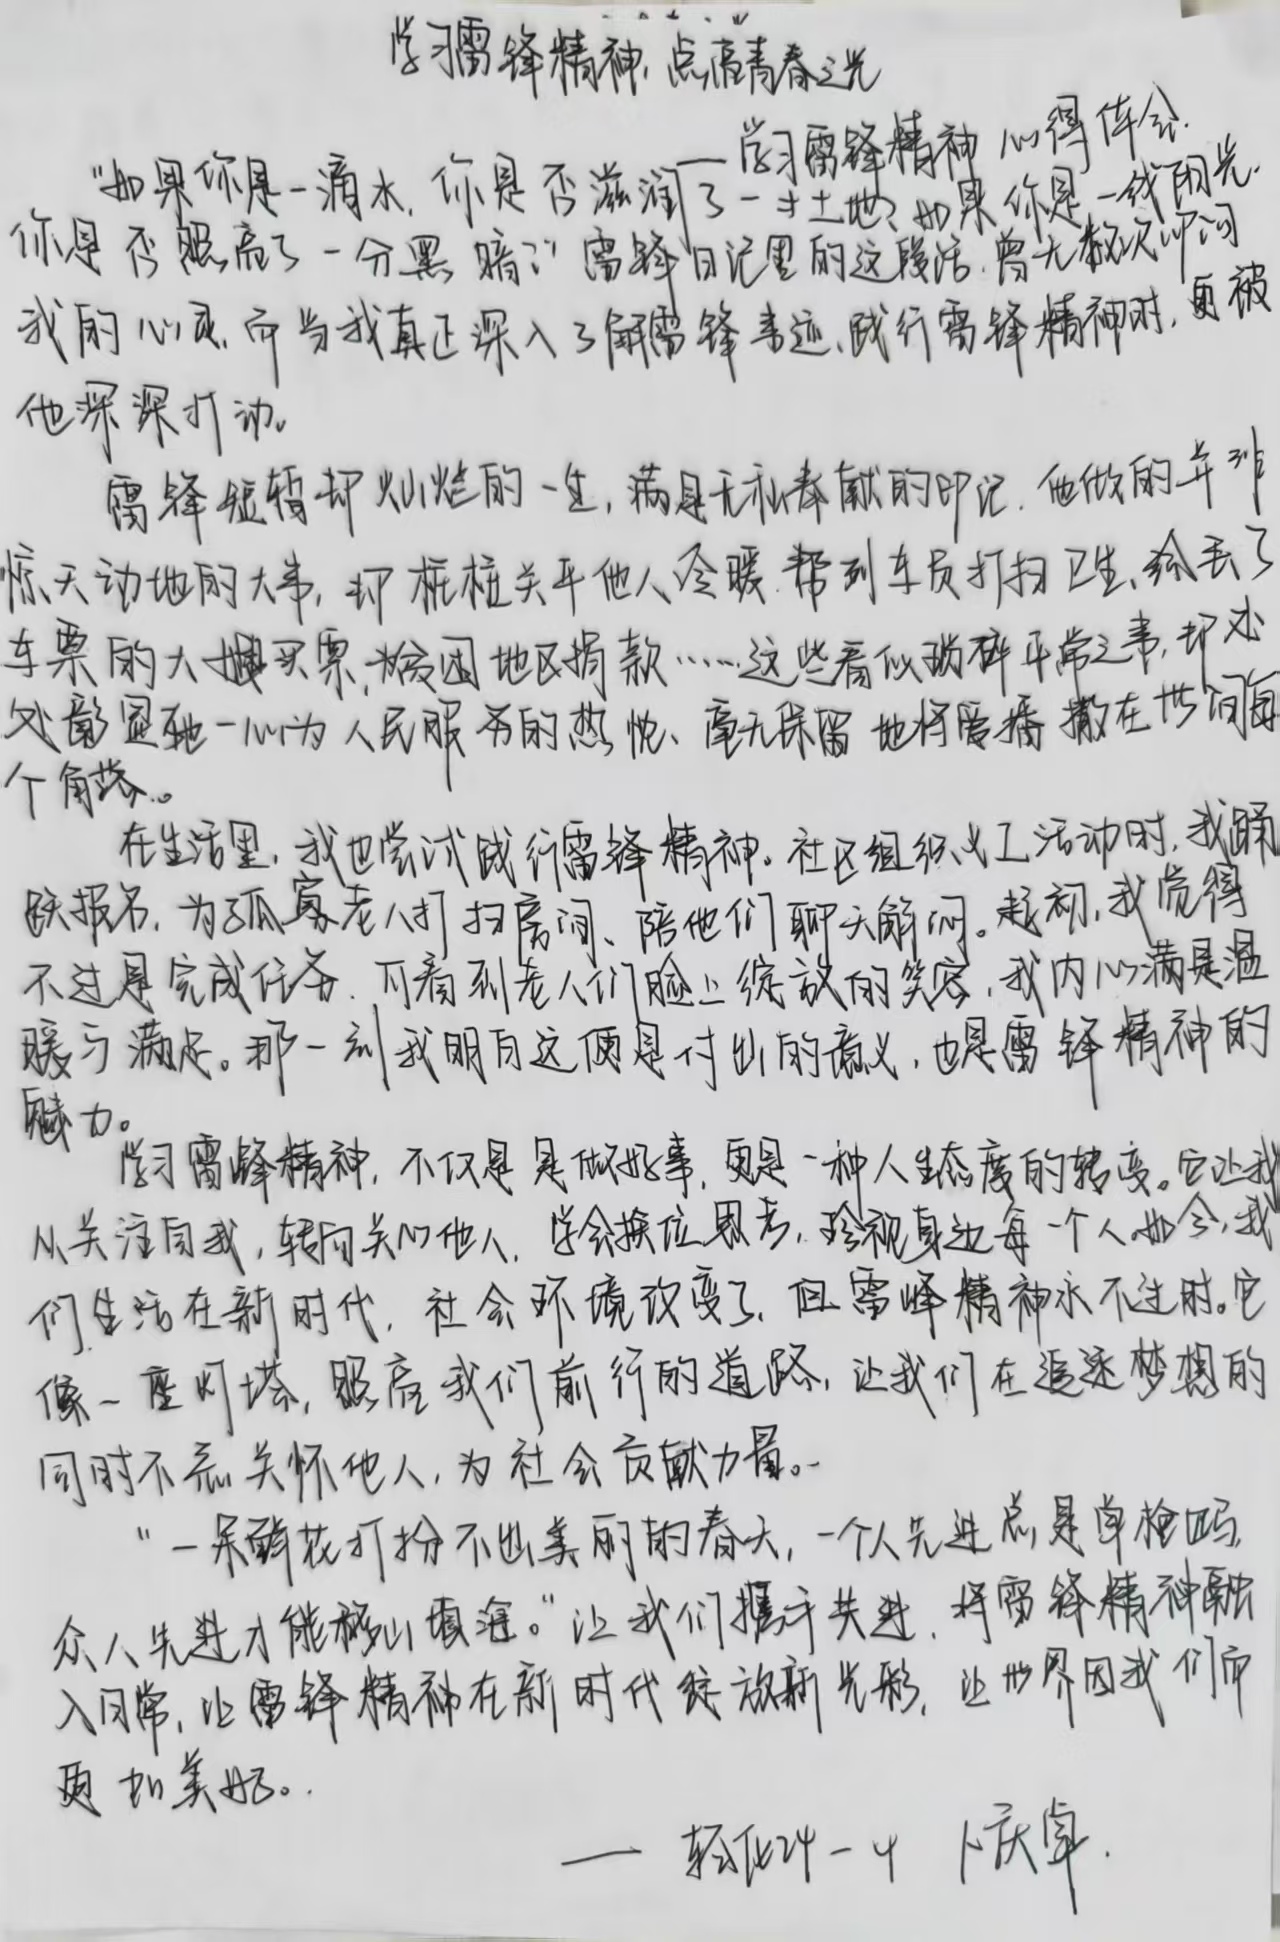 学习雷锋精神，点亮青春之光
——学习雷锋精神 心得体会.
"如果你是一滴水，你是否滋润了一寸土地？如果你是一线阳光.
你是否照亮了一分黑暗？"雷锋日记里的这段话，曾无数次叩问
我的心灵，而当我真正深入了解雷锋事迹、践行雷锋精神时，更被
他深深打动。
雷锋短暂却灿烂的一生，满是无私奉献的印记．他做的并非
惊天动地的大事，却桩桩关乎他人冷暖．帮列车员打扫卫生、给丢了
车票的大嫂买票，为贫困地区捐款……这些看似琐碎平常之事，却处
处彰显他一心为人民服务的热忱、毫无保留地将爱播撒在世间每
个角落。
在生活里，我也尝试践行雷锋精神。社区组织义工活动时，我踊
跃报名，为孤寡老人打扫房间、陪他们聊天解闷。起初，我觉得
不过是完成任务．可看到老人们脸上绽放的笑容，我内心满是温
暖与满足。那一刻我明白这便是付出的意义，也是雷锋精神的
魅力。
学习雷锋精神，不仅是是做好事，更是一种人生态度的转变。它让我
从关注自我，转向关心他人，学会换位思考，珍视身边每一个人。如今，我
们生活在新时代，社会环境改变了，但雷峰精神永不过时。它
像一座灯塔，照亮我们前行的道路，让我们在追逐梦想的
同时不忘关怀他人，为社会贡献力量。
"一朵鲜花打扮不出美丽的春天，一个人先进总是单枪匹马，
众人先进才能移山填海。"让我们携手共进，将雷锋精神融
入日常，让雷锋精神在新时代绽放新光彩，让世界因我们而
更加美好。
—— 轻化24-4 卜庆卓.